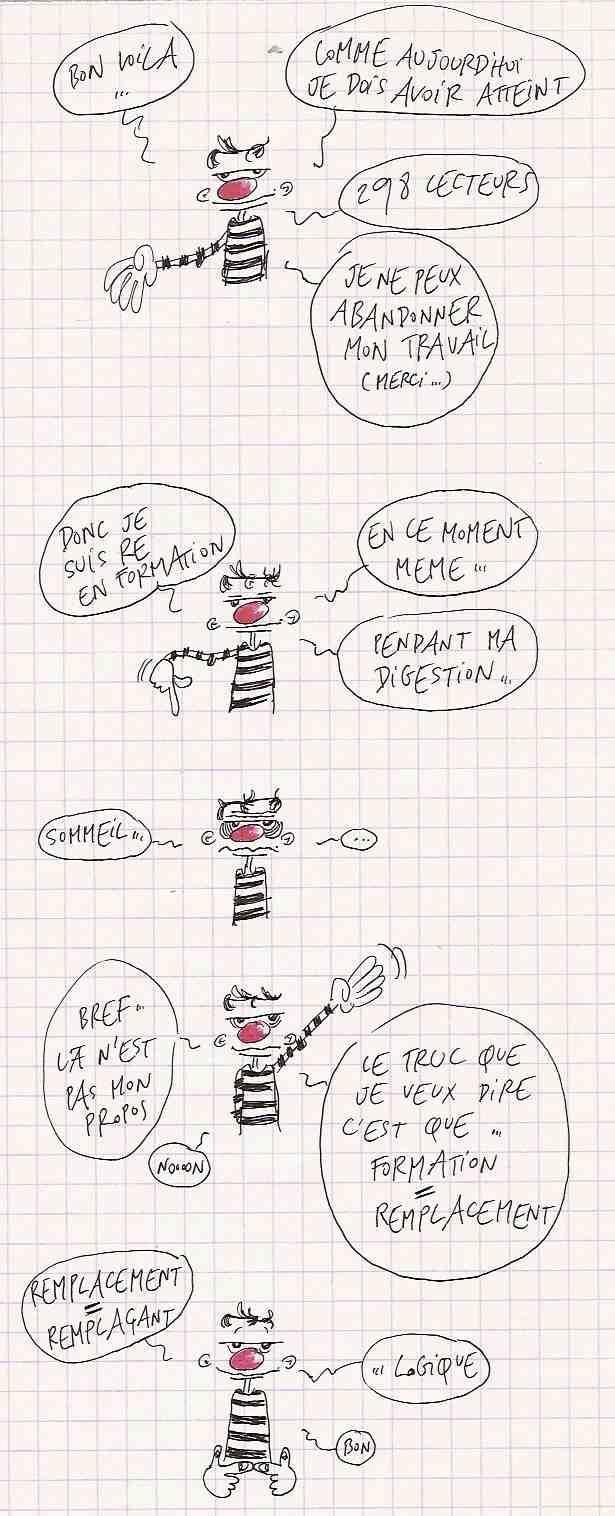 BON VOILA
...
COMME AUJOURD'HUI
JE DOIS AVOIR ATTEINT
298 LECTEURS
JE NE PEUX
ABANDONNER
MON TRAVAIL
(MERCI...)
DONC JE
SUIS RE
EN FORMATION
EN CE MOMENT
MEME ...
PENDANT MA
DIGESTION...
SOMMEIL...
...
BREF...
LÀ N'EST
PAS MON
PROPOS
NOOON
LE TRUC QUE
JE VEUX DIRE
C'EST QUE ...
FORMATION
=
REMPLACEMENT
REMPLACEMENT
=
REMPLAÇANT
... LOGIQUE
BON